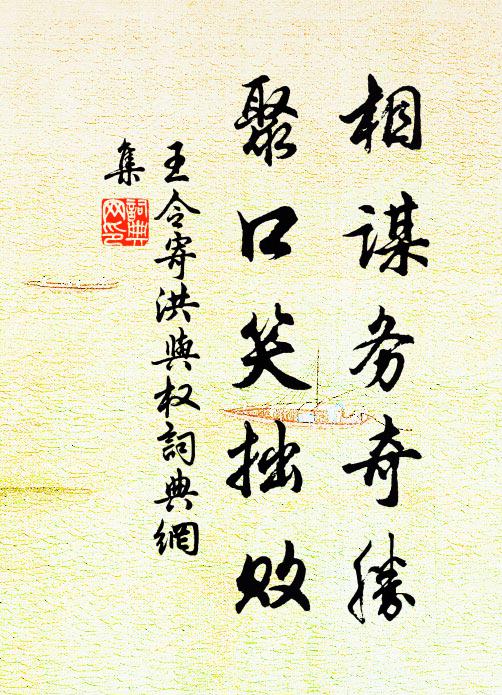 相谋务奇勝
聚口笑拙败
王令寄洪與权詞典網
集
詞典
网印